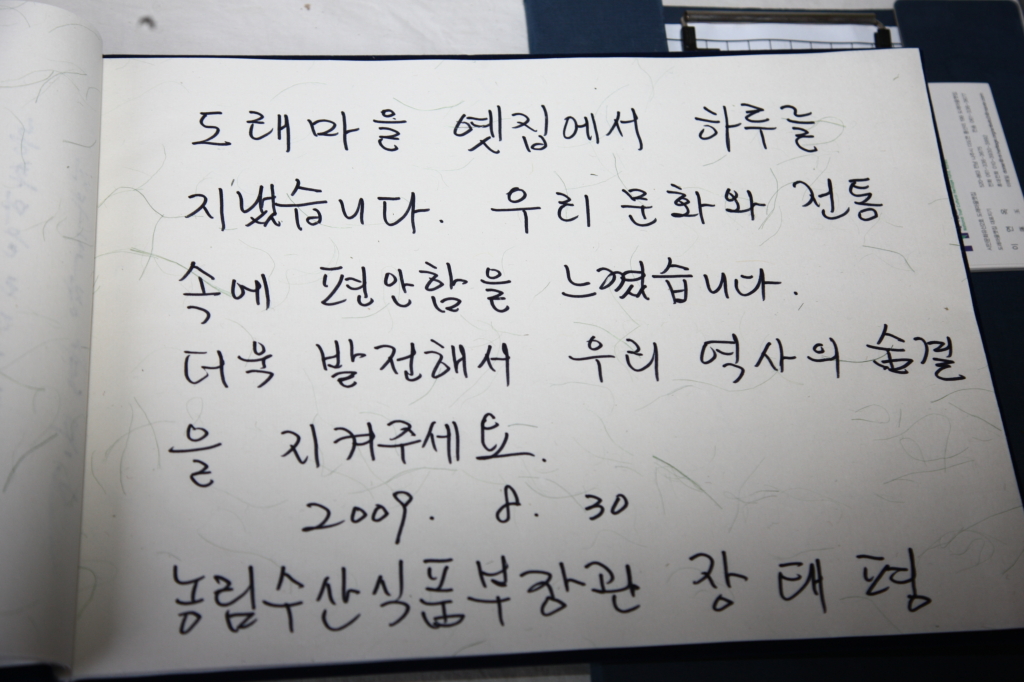 도래마을 옛집에서 하루를
지냈습니다. 우리 문화와 전통
속에 편안함을 느꼈습니다.
더욱 발전해서 우리 역사의 숨결
을 지켜주세요.
2009. 8. 30
농림수산식품부장관 장태평